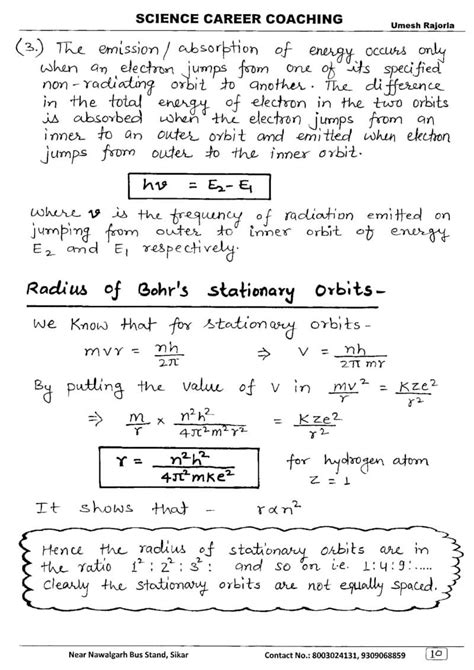 SCIENCE CAREER COACHING
Umesh Rajoria
(3.) The emission / absorption of energy occurs only
when an electron jumps from one of its specified
non-radiating orbit to another. The difference
in the total energy of electron in the two orbits
is absorbed when the electron jumps from an
inner to an outer orbit and emitted when elctron
jumps from outer to the inner orbit.
hν = E₂ - E₁
where ν is the frequency of radiation emitted on
jumping from outer to inner orbit of energy
E₂ and E₁ respectively.
Radius of Bohr's stationary Orbits-
We Know that for stationary orbits-
mvr = nh/2π ⇒ v = nh/2π mr
By putting the value of v in mv²/r = Kze²/r²
⇒ m/r × n²h²/4π²m²r² = Kze²/r²
r = n²h²/4π²mKe² for hydrogen atom
Z = 1
It shows that - r∝n²
Hence the radius of stationary orbits are in
the ratio 1² : 2² : 3² : and so on i.e. 1:4:9:....
Clearly the stationary orbits are not equally spaced.
Near Nawalgarh Bus Stand, Sikar Contact No.: 8003024131, 9309068859 10